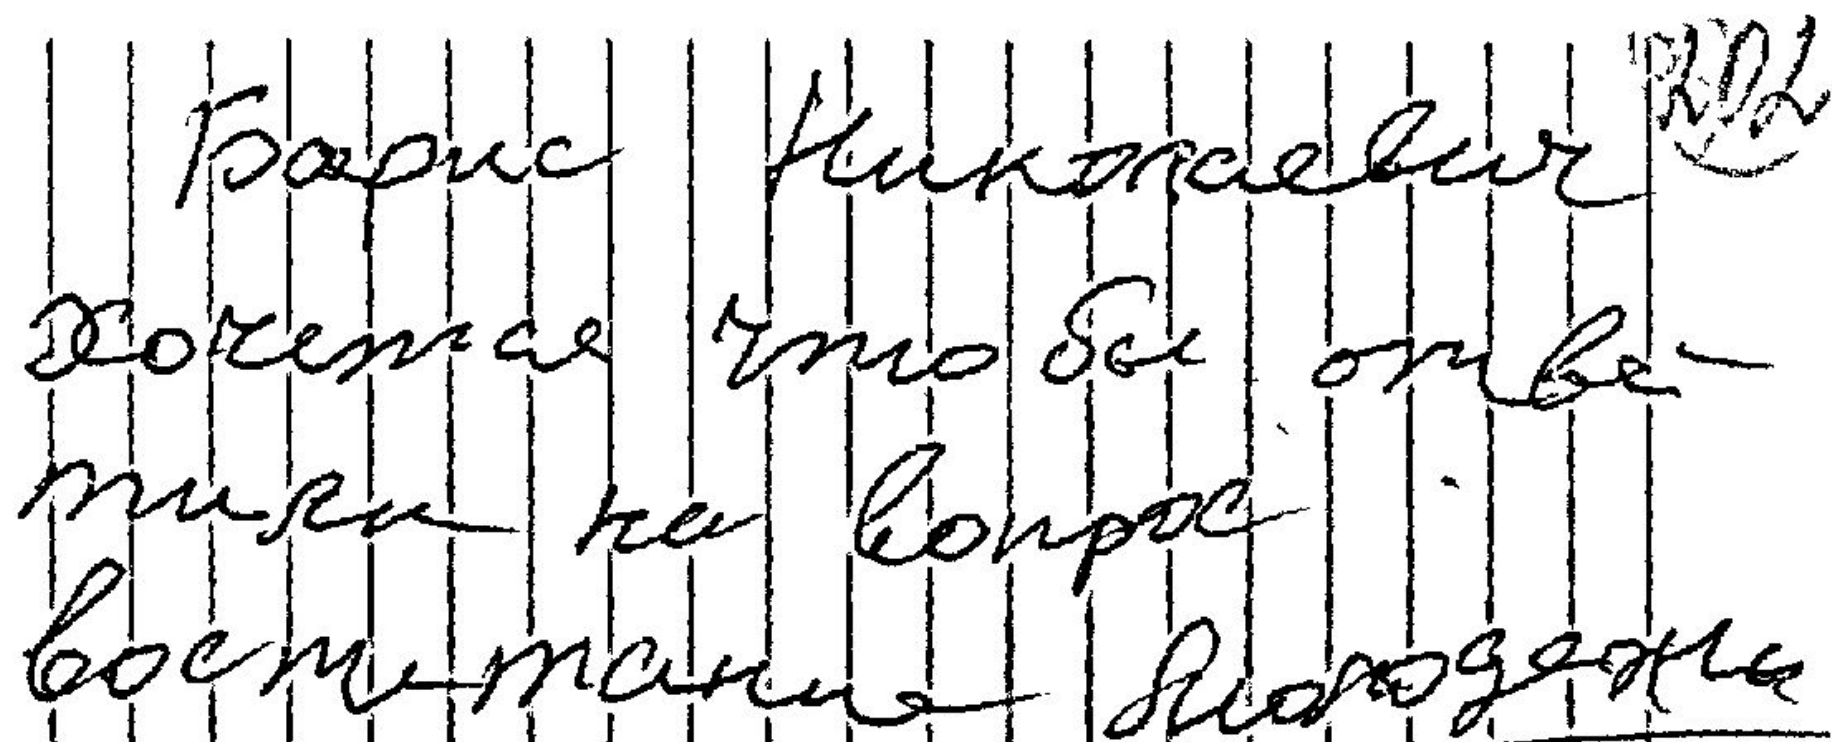 202
Борис Николаевич
Хочется что бы отве-
тили на вопрос
воспитание молодежи